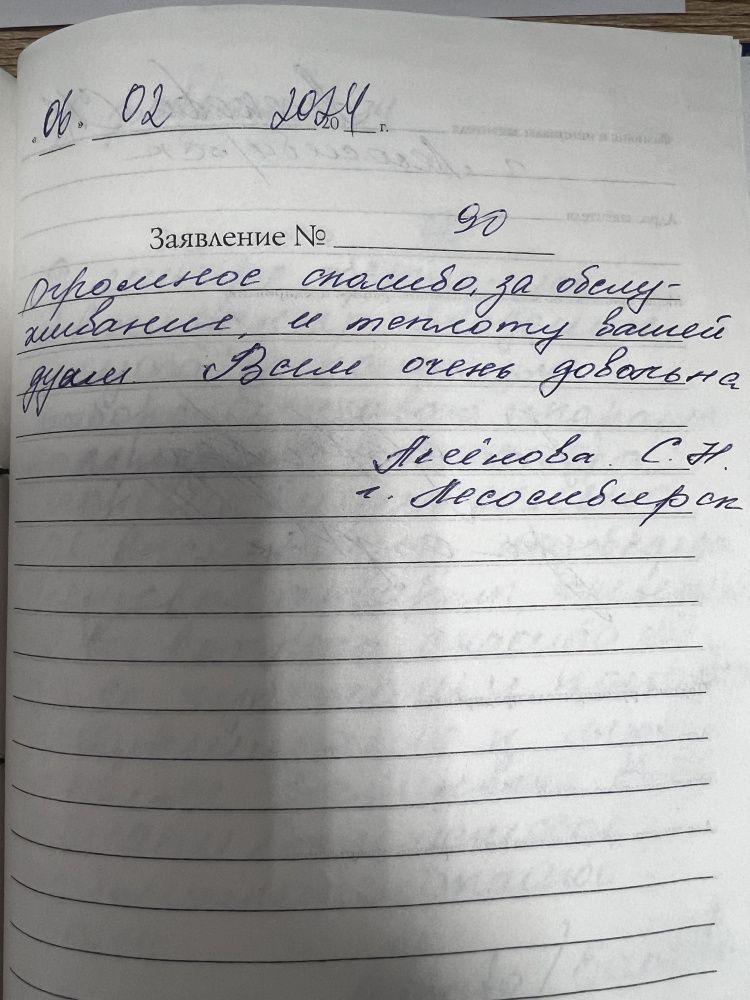 « 06 » 02 2024 20 г.
Заявление № 90
огромное спасибо, за обслу-
живание, и теплоту вашей
души. Всем очень довольна
Аксёнова С.Н.
г. Лесосибирск